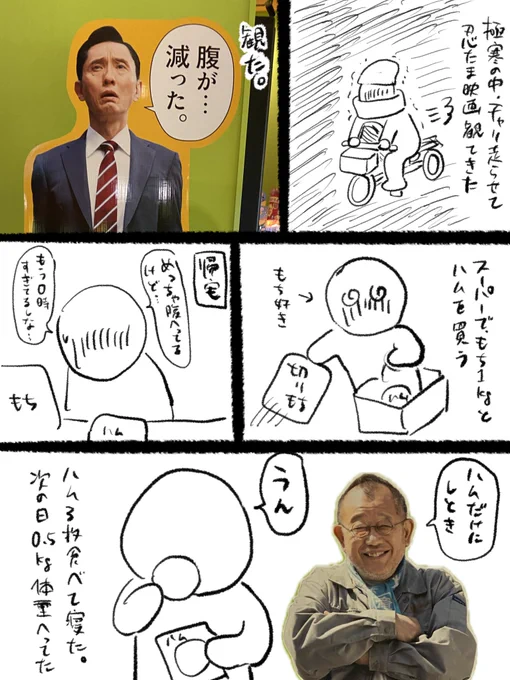 極寒の中、チャリ走らせて
忍たま映画観てきた
観た。
腹が…
減った。
スーパーで、もち1kgと
ハムを買う
もち好き
切りもち
ハム
帰宅
めっちゃ腹へってる
けど…
もう0時
すぎてるしな…
もち
ハム
ハムだけに
しとき
うん
ハム
ハム3枚食べて寝た。
次の日0.5kg体重へってた